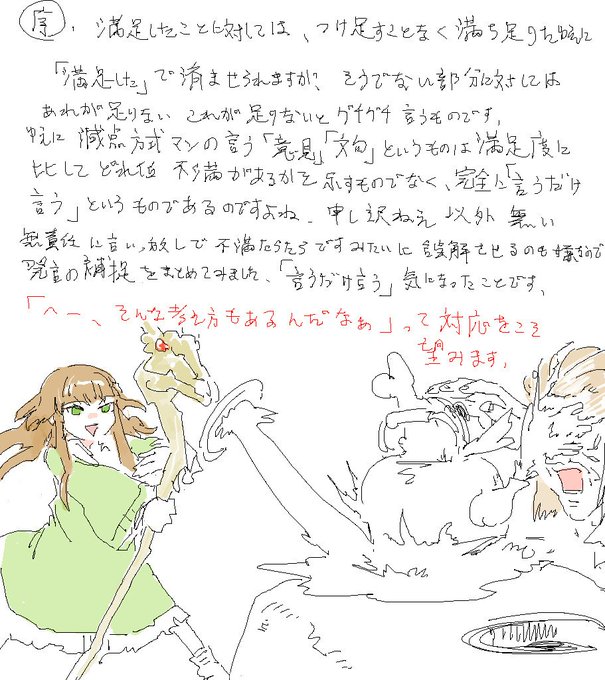 序. 満足したことに対しては、つけ足すことなく満ち足りた故に
「満足した」で済ませられますが、そうでない部分に対しては
あれが足りない これが足りないと グチグチ言うものです。
故に 減点方式マンの言う「意見」「文句」というものは満足度に
比して どれ位 不満があるかを示すものでなく、完全に「言うだけ
言う」というものであるのですよね. 申し訳ねえ 以外 無い
無責任に言い放しで 不満たらたらですみたいに 誤解させるのも嫌なので
発言の補捉をまとめてみました、「言うだけ言う」気になったことです。
「へー、そんな考え方もあるんだなぁ」って対応をこそ
望みます。